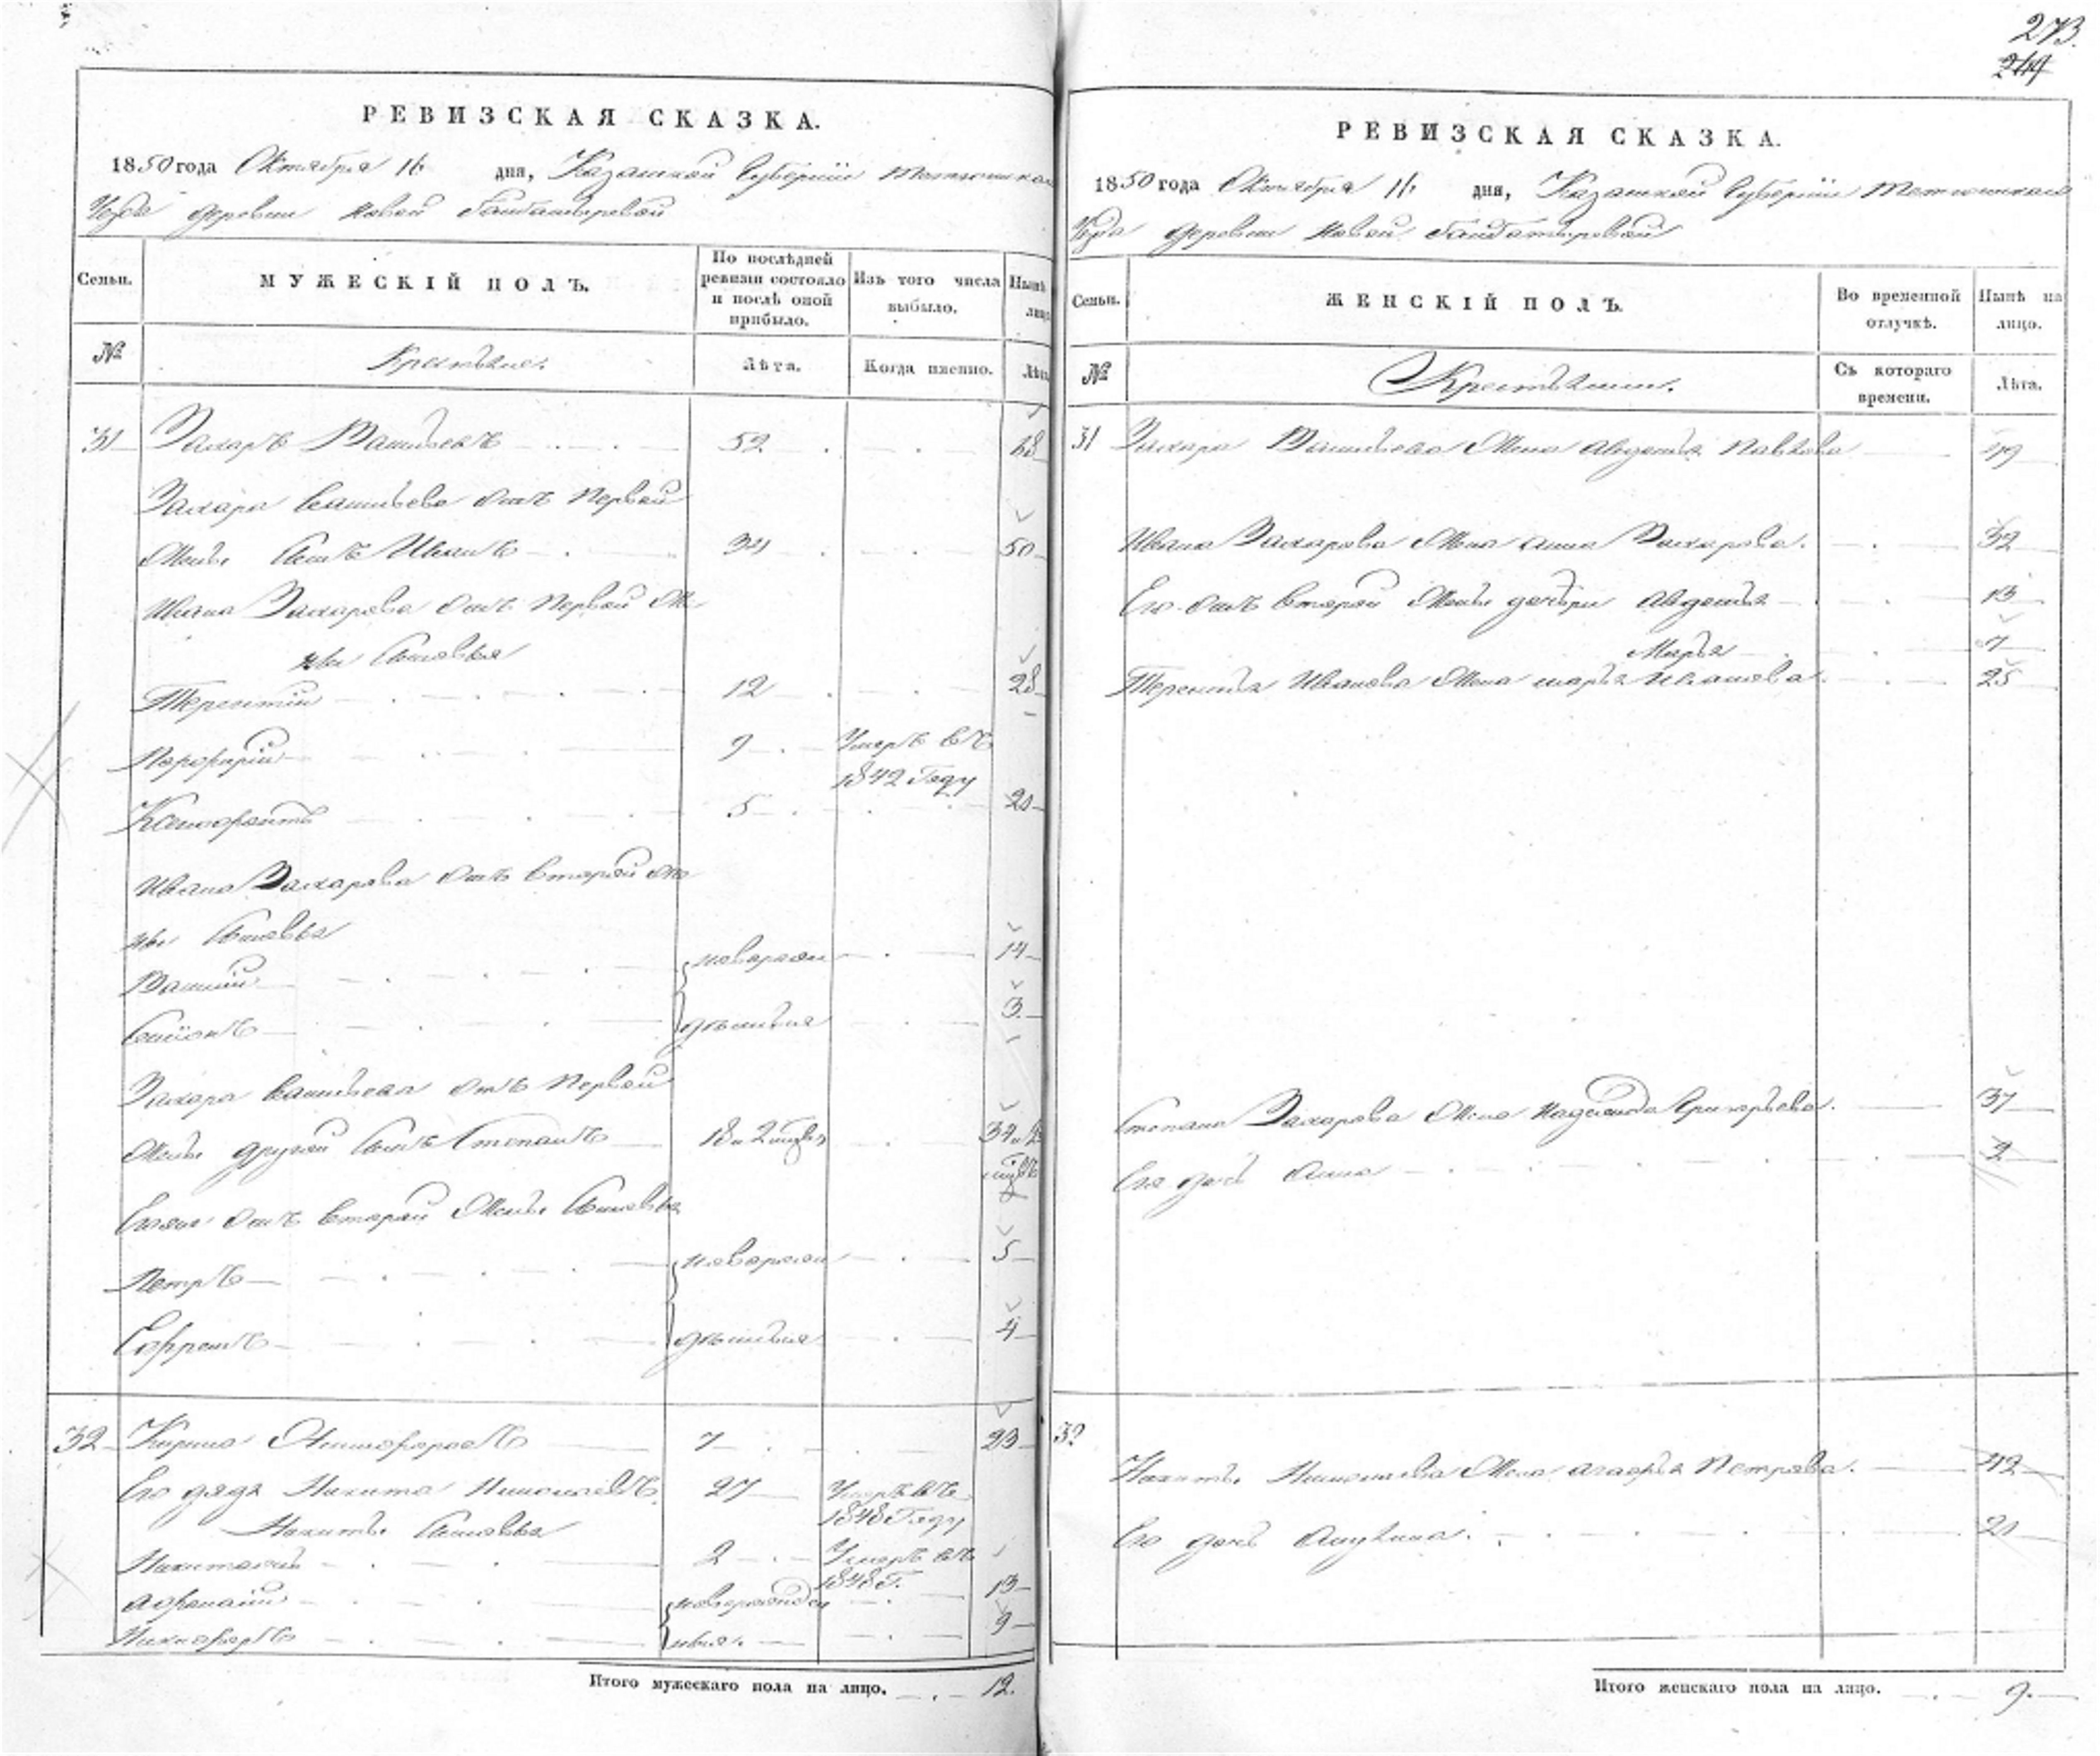 273.
244
РЕВИЗСКАЯ СКАЗКА.
1850 года Октября 16 дня, Казанской Губернiи Тетюшскаго
Уезда деревни Новой Байбатыревой
Семьи. МУЖЕСКIЙ ПОЛЪ. По послѣдней ревизiи состояло и послѣ оной прибыло. Изъ того числа выбыло. Нынѣ на лицо
№ Крестьяне. Лѣта. Когда именно. Лѣта
31 Захаръ Васильевъ 52 68
Захара Васильева отъ первой
жены сынъ Иванъ 34 50
Ивана Захарова отъ первой же
ны сыновья
Терентiй 12 28
Порфирiй 9 Умеръ въ
1842 Году
Ксенофонтъ 5 21
Ивана Захарова отъ второй же
ны сыновья
Василiй новорож 14
Симонъ денныя 3
Захара Васильева отъ первой
жены другой сынъ Степанъ 18
Степана отъ второй жены сыновья
Петръ новорож 5
Ефремъ денныя 4
32 Кирила Никифоровъ 7 23
Его дядя Никита Николаевъ 27 Умеръ въ
1848 Году
Никиты сыновья
2 Умеръ въ
1848 Г.
Афанасiй новорожден 13
Никифоръ ныя. 9
Итого мужескаго пола на лицо. 12.
РЕВИЗСКАЯ СКАЗКА.
1850 года Октября 16 дня, Казанской Губернiи Тетюшскаго
Уезда деревни Новой Байбатыревой
Семьи. ЖЕНСКIЙ ПОЛЪ. Во временной отлучкѣ. Нынѣ на лицо.
№ Крестьянки. Съ котораго времени. Лѣта.
31 Захара Васильева жена Авдотья Павлова 49
Ивана Захарова жена Анна Захарова. 32
Его отъ второй жены дочери Авдотья 13
Марья 7
Терентья Иванова жена Марья Иванова 25
Степана Захарова жена Надежда Григорьева. 37
Его дочь Анна 2
32
Никиты Николаева жена Агафья Петрова. 42
Его дочь Акулина. 21
Итого женскаго пола на лицо. 9.